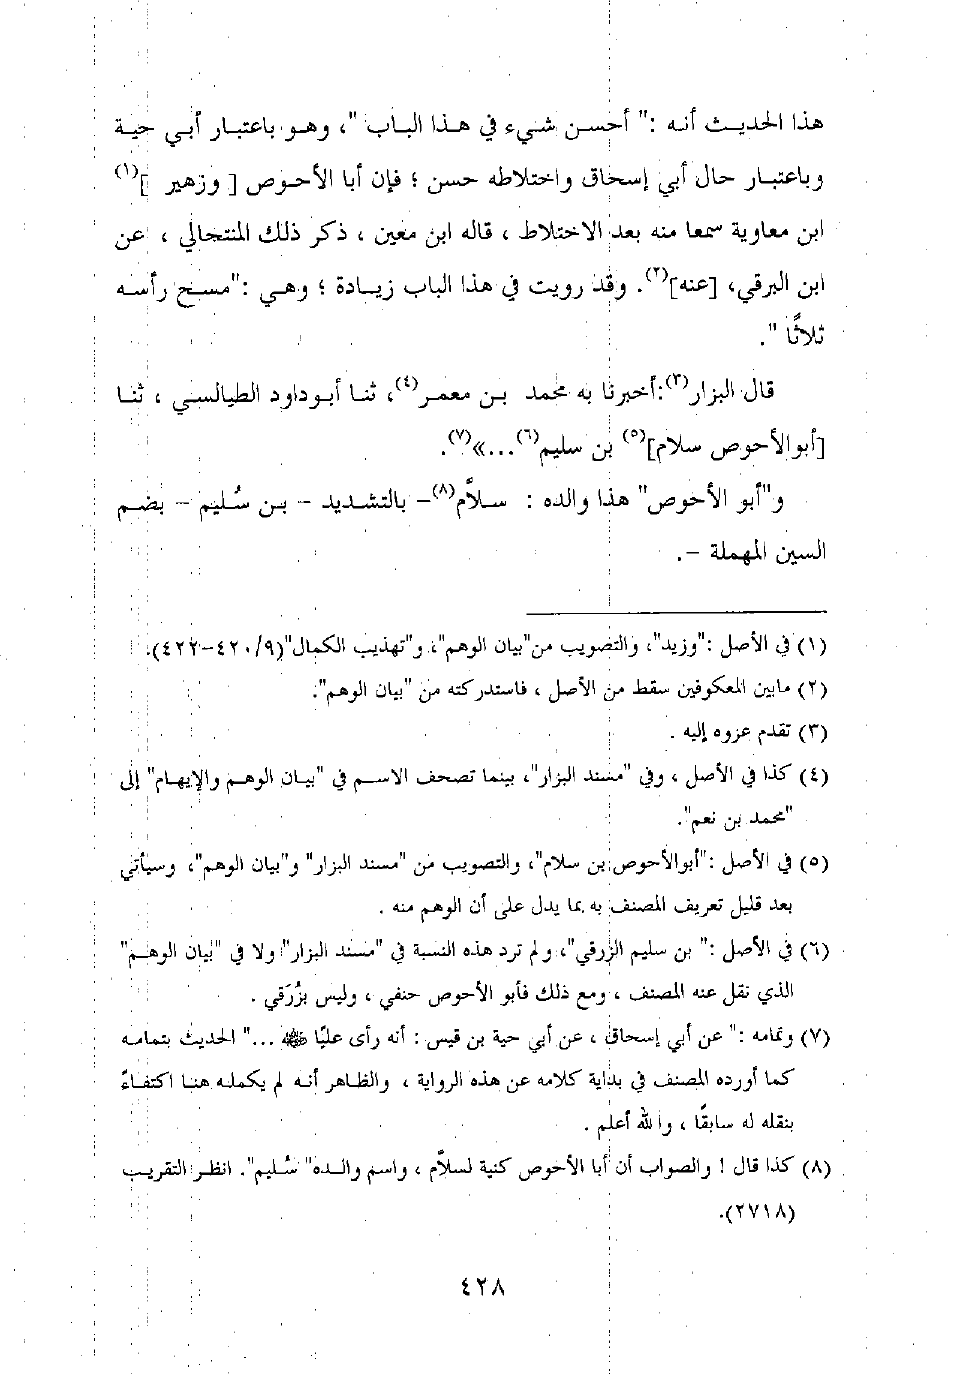 هذا الحديث أنه :" أحسن شيء في هذا الباب "، وهو باعتبار أبي حية
وباعتبار حال أبي إسحاق واختلاطه حسن ؛ فإن أبا الأحوص [ وزهير ](١)
ابن معاوية سمعا منه بعد الاختلاط ، قاله ابن معين ، ذكر ذلك المنتجالي ، عن
ابن البرقي، [عنه](٢). وقد رويت في هذا الباب زيادة ؛ وهي :"مسح رأسه
ثلاثًا ".
قال البزار(٣):أخبرنا به محمد بن معمر(٤)، ثنا أبوداود الطيالسي ، ثنا
[أبوالأحوص سلام](٥) بن سليم(٦)...»(٧).
و"أبو الأحوص" هذا والده : سلاَّم(٨)– بالتشديد – بن سُليم – بضم
السين المهملة –.
(١) في الأصل :"وزيد"، والتصويب من"بيان الوهم"، و"تهذيب الكمال"(٩/ ٤٢٠–٤٢٢).
(٢) مابين المعكوفين سقط من الأصل ، فاستدركته من "بيان الوهم".
(٣) تقدم عزوه إليه .
(٤) كذا في الأصل ، وفي "مسند البزار"، بينما تصحف الاسم في "بيان الوهم والإيهام" إلى
"محمد بن نعم".
(٥) في الأصل :"أبوالأحوص بن سلام"، والتصويب من "مسند البزار" و"بيان الوهم"، وسيأتي
بعد قليل تعريف المصنف به بما يدل على أن الوهم منه .
(٦) في الأصل :" بن سليم الزرقي"، ولم ترد هذه النسبة في "مسند البزار" ولا في "بيان الوهم"
الذي نقل عنه المصنف ، ومع ذلك فأبو الأحوص حنفي ، وليس بزُرَقي .
(٧) وتمامه :" عن أبي إسحاق ، عن أبي حية بن قيس : أنه رأى عليًا ﷺ ..." الحديث بتمامه
كما أورده المصنف في بداية كلامه عن هذه الرواية ، والظاهر أنه لم يكمله هنا اكتفاءً
بنقله له سابقًا ، والله أعلم .
(٨) كذا قال ! والصواب أن أبا الأحوص كنية لسلاَّم ، واسم والده" سُليم". انظر التقريب
(٢٧١٨).
٤٢٨